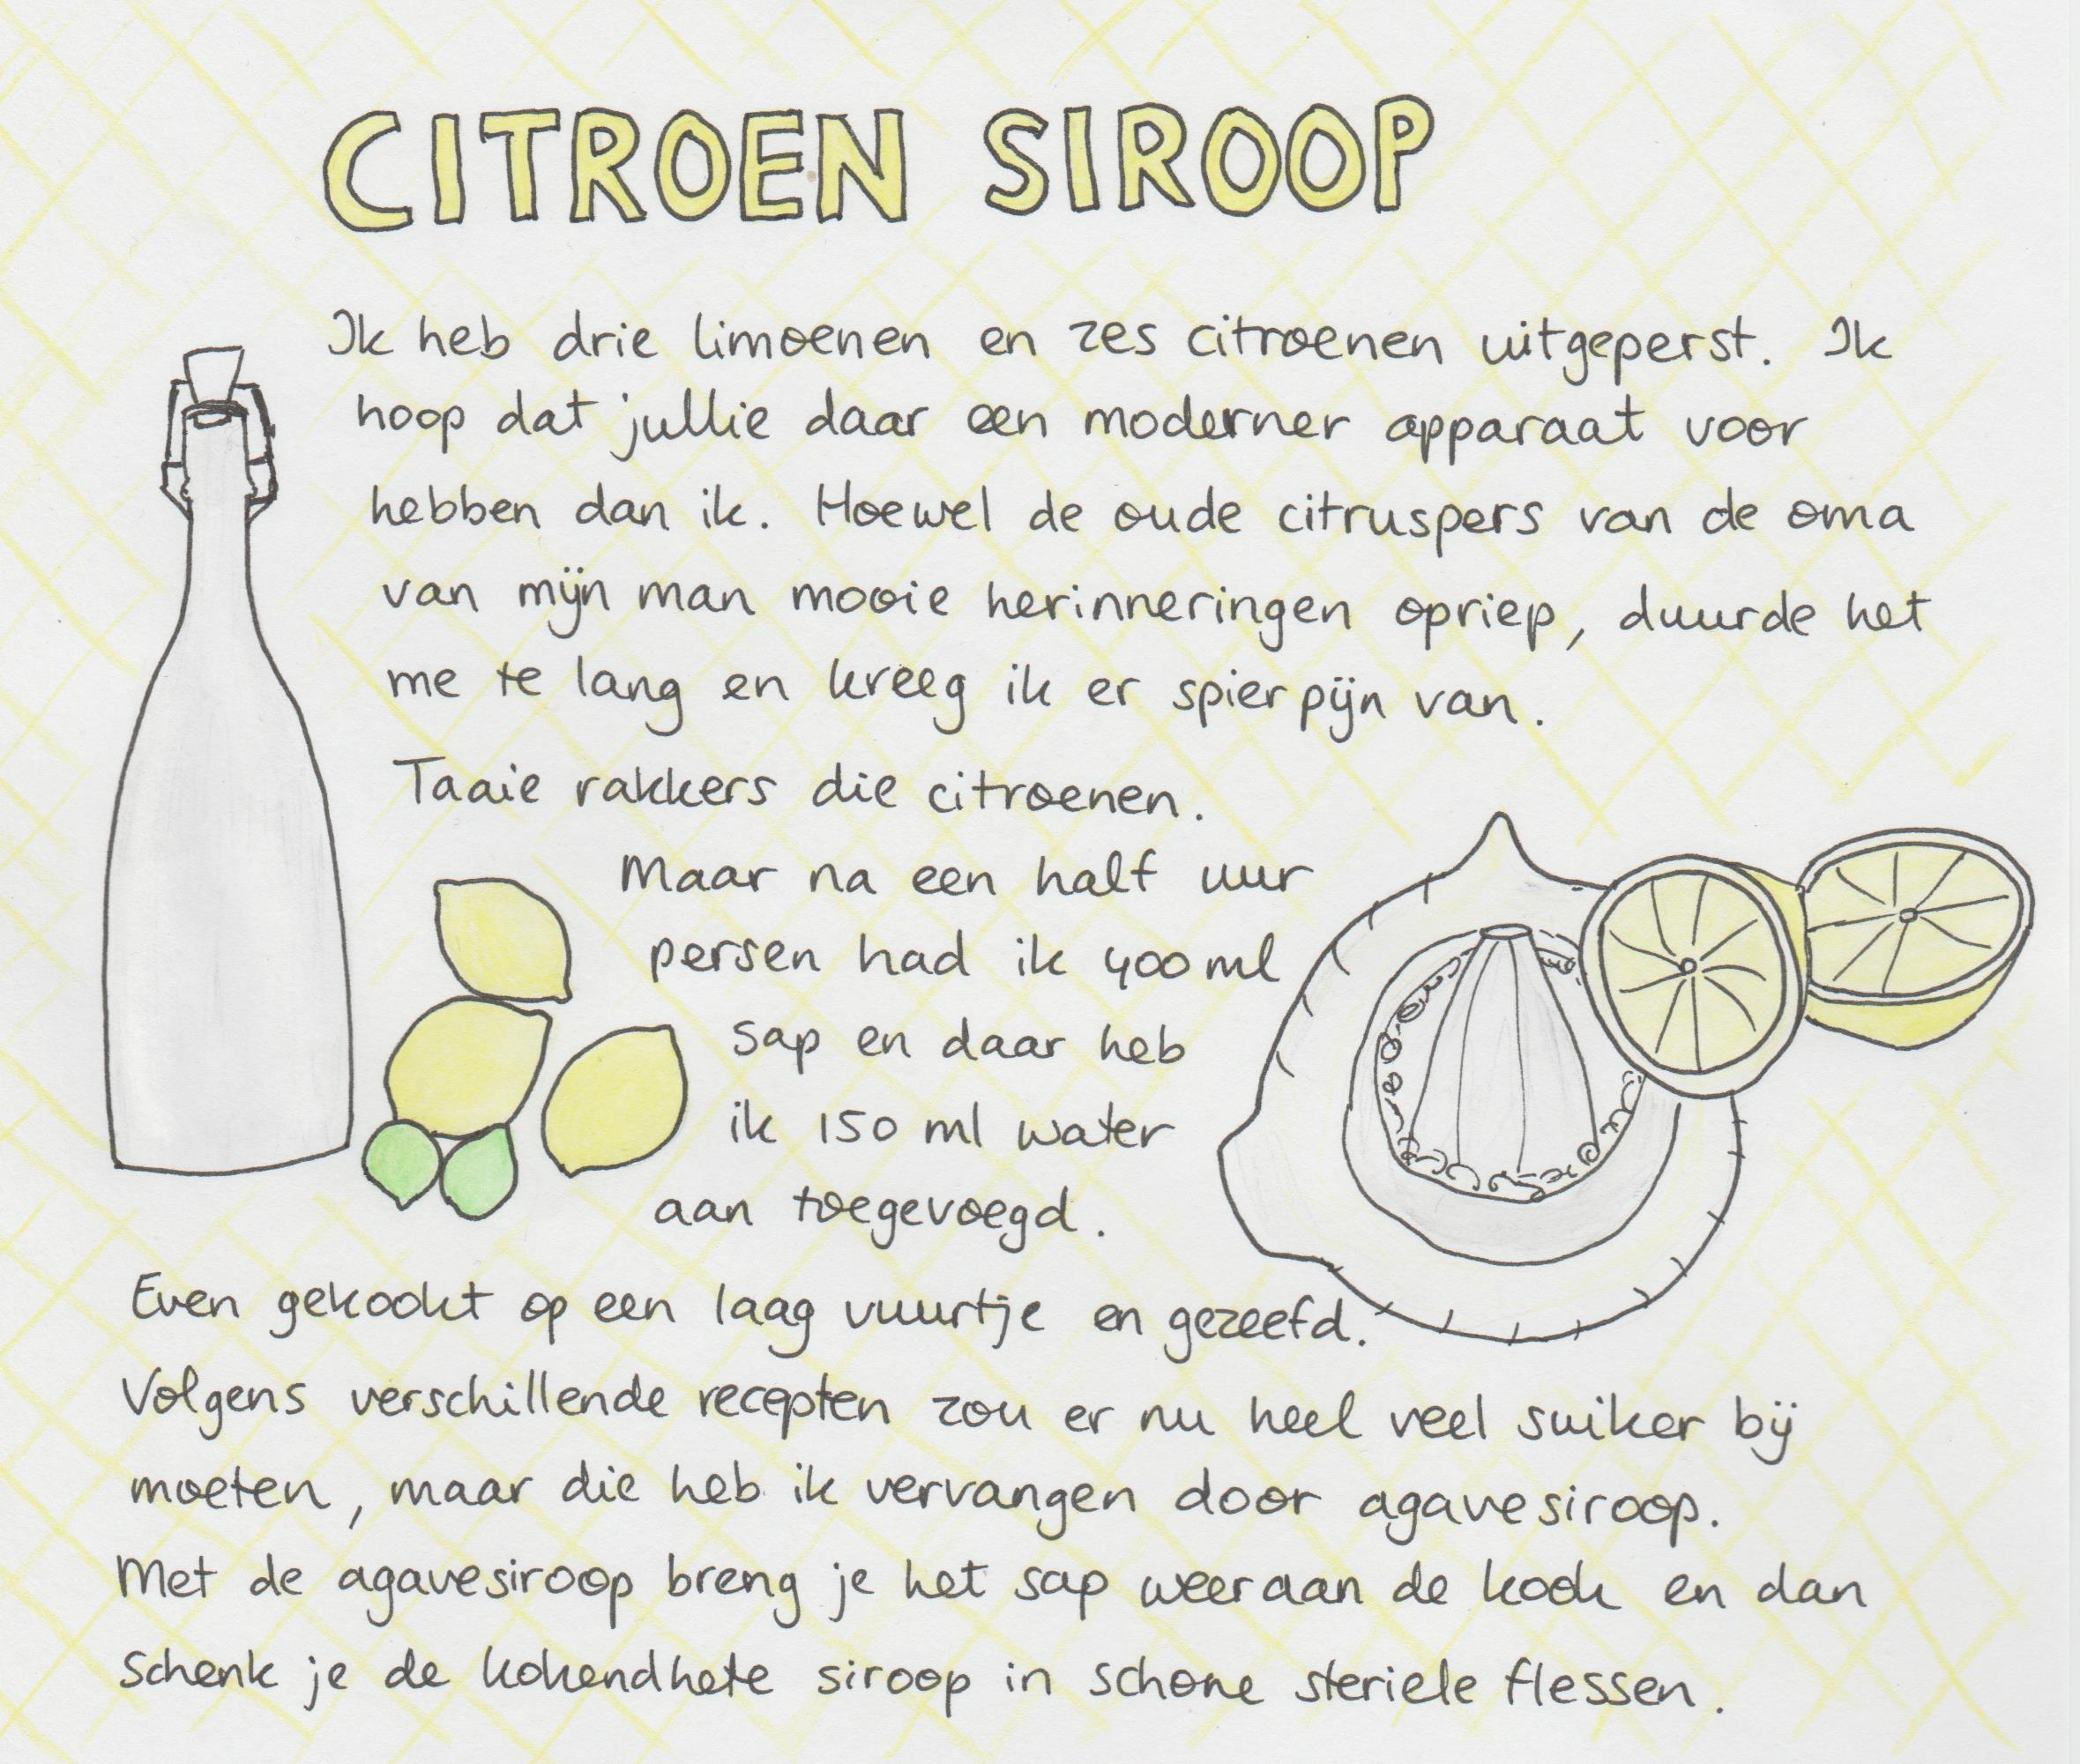 CITROEN SIROOP
Ik heb drie limoenen en zes citroenen uitgeperst. Ik
hoop dat jullie daar een moderner apparaat voor
hebben dan ik. Hoewel de oude citruspers van de oma
van mijn man mooie herinneringen opriep, duurde het
me te lang en kreeg ik er spierpijn van.
Taaie rakkers die citroenen.
Maar na een half uur
persen had ik 400 ml
sap en daar heb
ik 150 ml water
aan toegevoegd.
Even gekookt op een laag vuurtje en gezeefd.
Volgens verschillende recepten zou er nu heel veel suiker bij
moeten, maar die heb ik vervangen door agavesiroop.
Met de agavesiroop breng je het sap weer aan de kook en dan
schenk je de kokendhete siroop in schone steriele flessen.